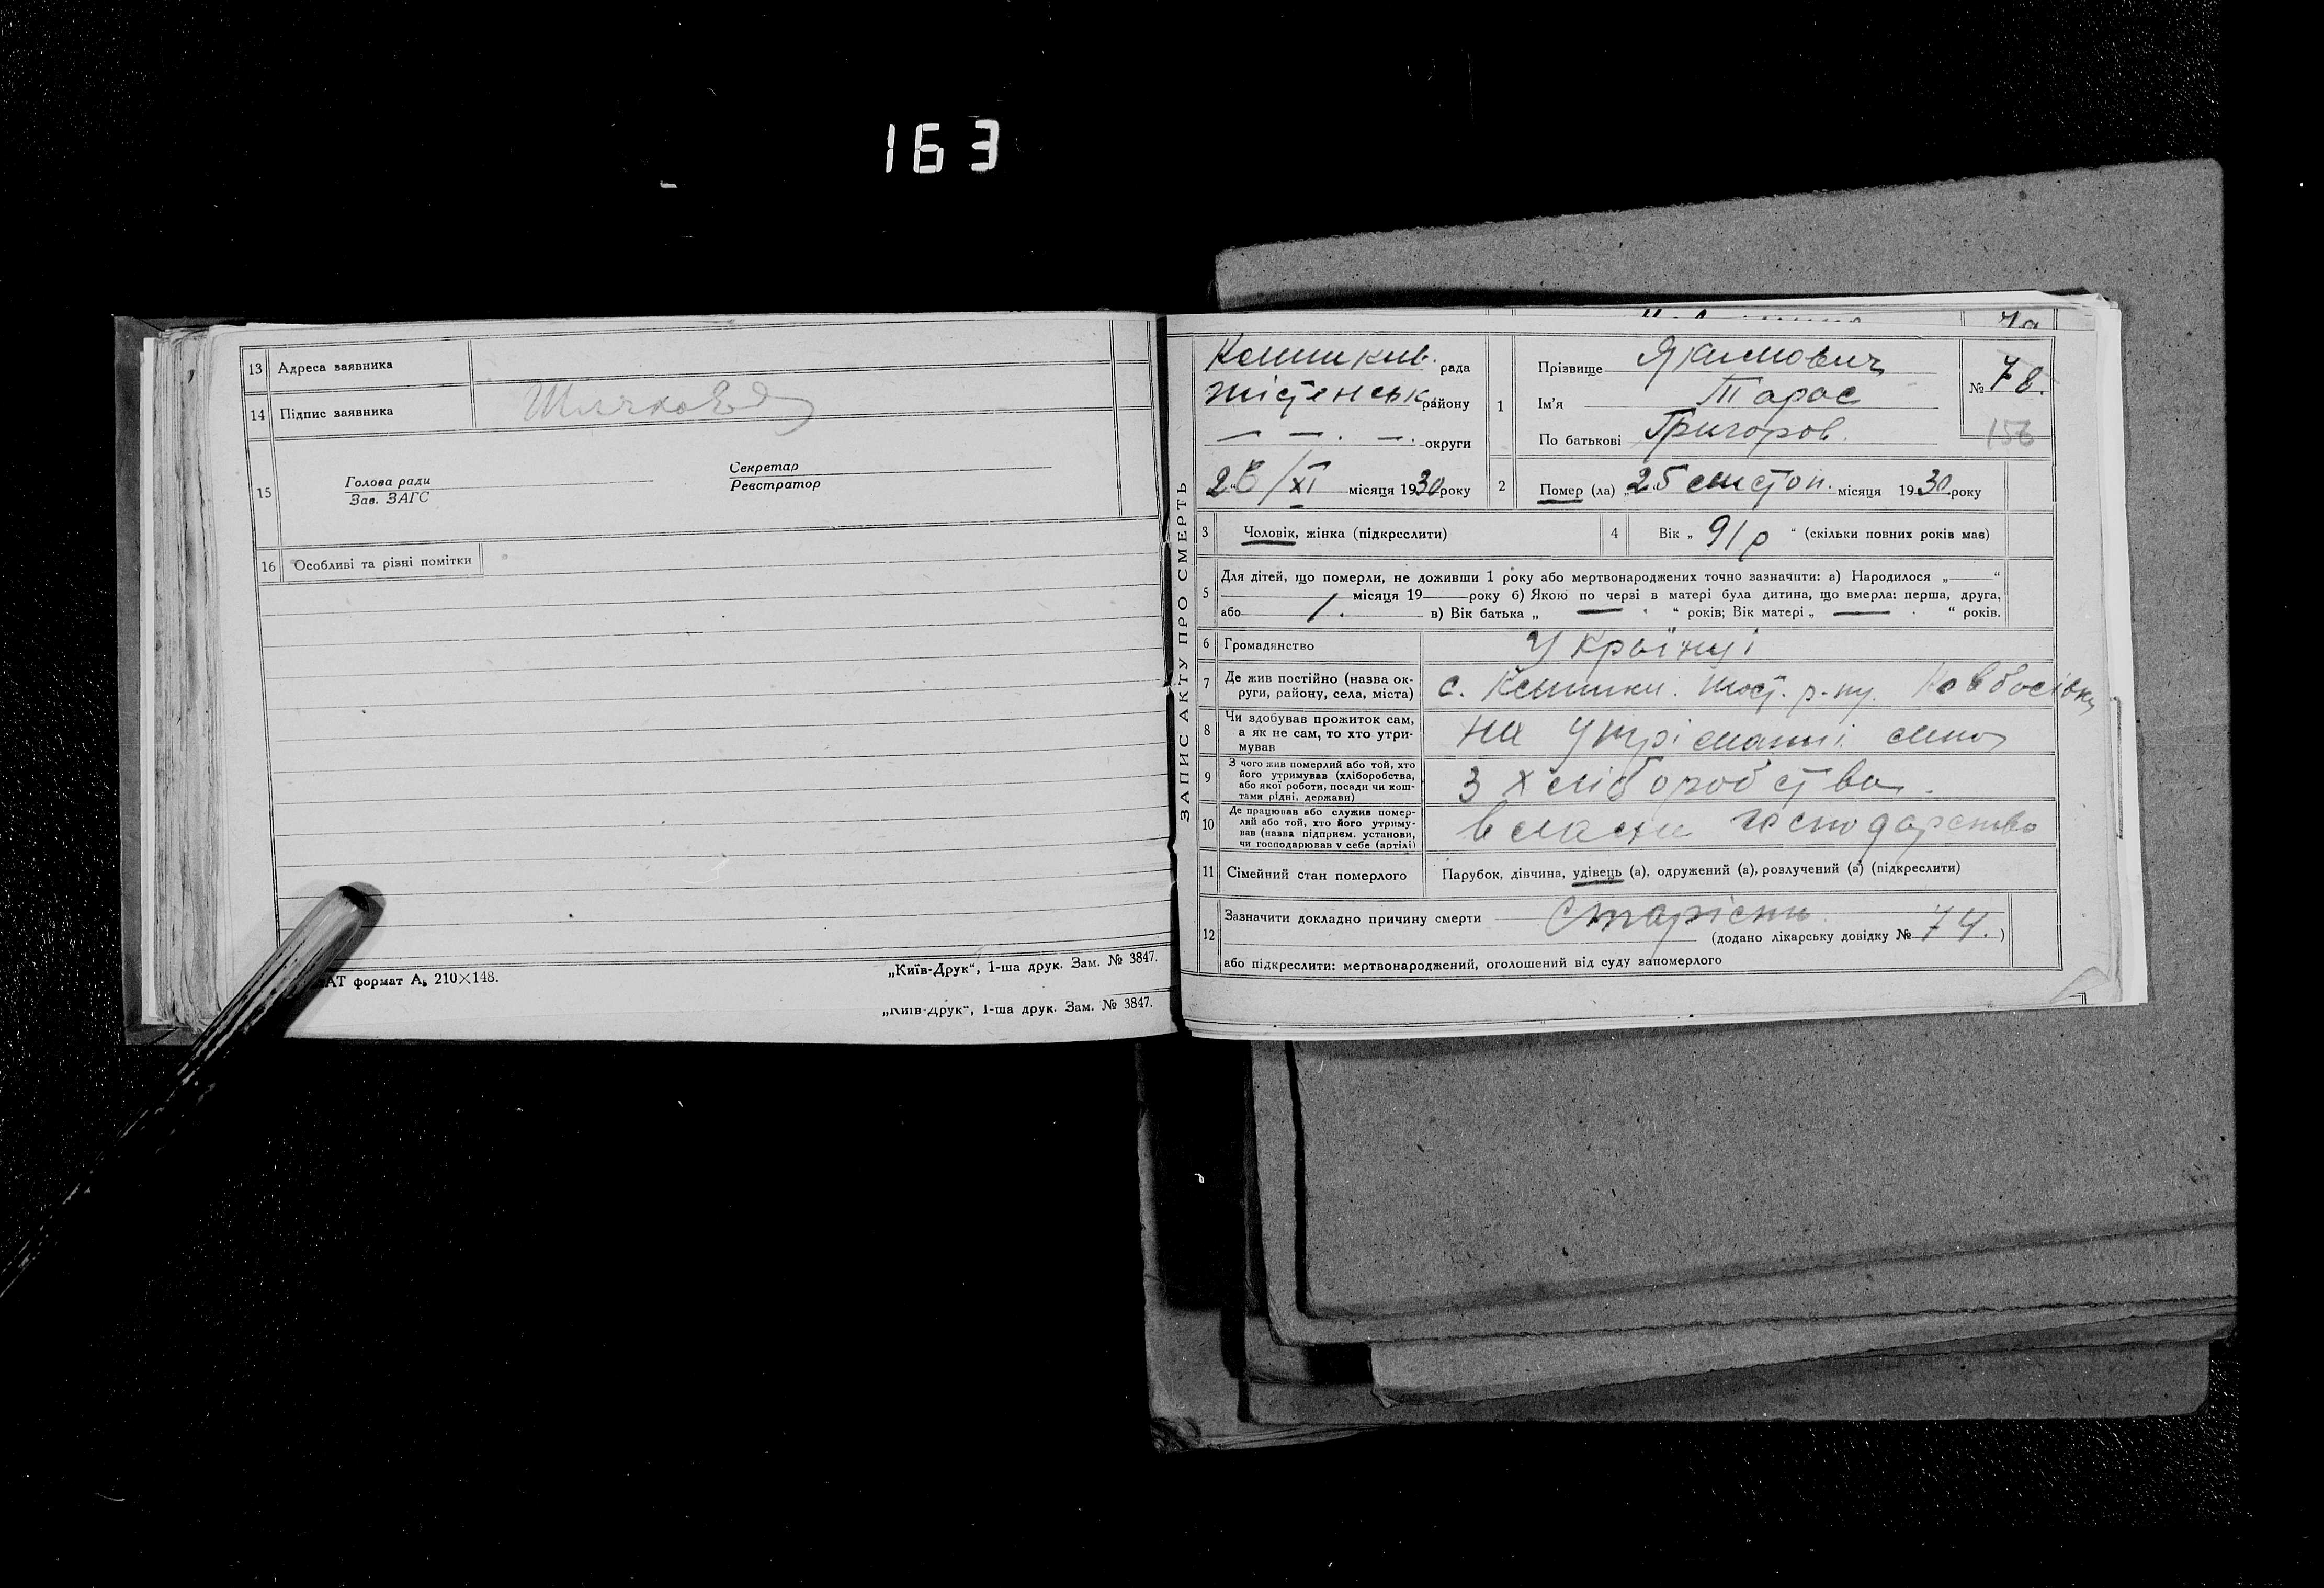 163
13 Адреса заявника
14 Підпис заявника
15 Голова ради
Зав. ЗАГС
Секретар
Реєстратор
16 Особливі та різні помітки
формат А₅ 210×148.
„Київ-Друк“, 1-ша друк. Зам. № 3847.
„Київ-Друк“, 1-ша друк. Зам. № 3847.
ЗАПИС АКТУ ПРО СМЕРТЬ
рада
району
— — . — . округи
26/XI місяця 1930 року
1 Прізвище Якимович
Ім'я Тарас
По батькові Григоров.
№ 78.
156
2 Помер (ла) „25 листоп. місяця 1930 року
3 Чоловік, жінка (підкреслити)
4 Вік „ 91 р “ (скільки повних років має)
5 Для дітей, що померли, не доживши 1 року або мертвонароджених точно зазначити: а) Народилося „ “
місяця 19 року б) Якою по черзі в матері була дитина, що вмерла: перша, друга,
або в) Вік батька „ — “ років; Вік матері „ — “ років.
6 Громадянство Українці
7 Де жив постійно (назва ок-
руги, району, села, міста) с. р-ну.
8 Чи здобував прожиток сам,
а як не сам, то хто утри-
мував на
9 З чого жив померлий або той, хто
його утримував (хліборобства,
або якої роботи, посади чи кош-
тами рідні, держави) З хліборобства.
10 Де працював або служив помер-
лий або той, хто його утриму-
вав (назва підприєм. установи,
чи господарював у себе (артілі) власне господарство
11 Сімейний стан померлого Парубок, дівчина, удівець (а), одружений (а), розлучений (а) (підкреслити)
12 Зазначити докладно причину смерти Старість.
(додано лікарську довідку № 74. )
або підкреслити: мертвонароджений, оголошений від суду запомерлого